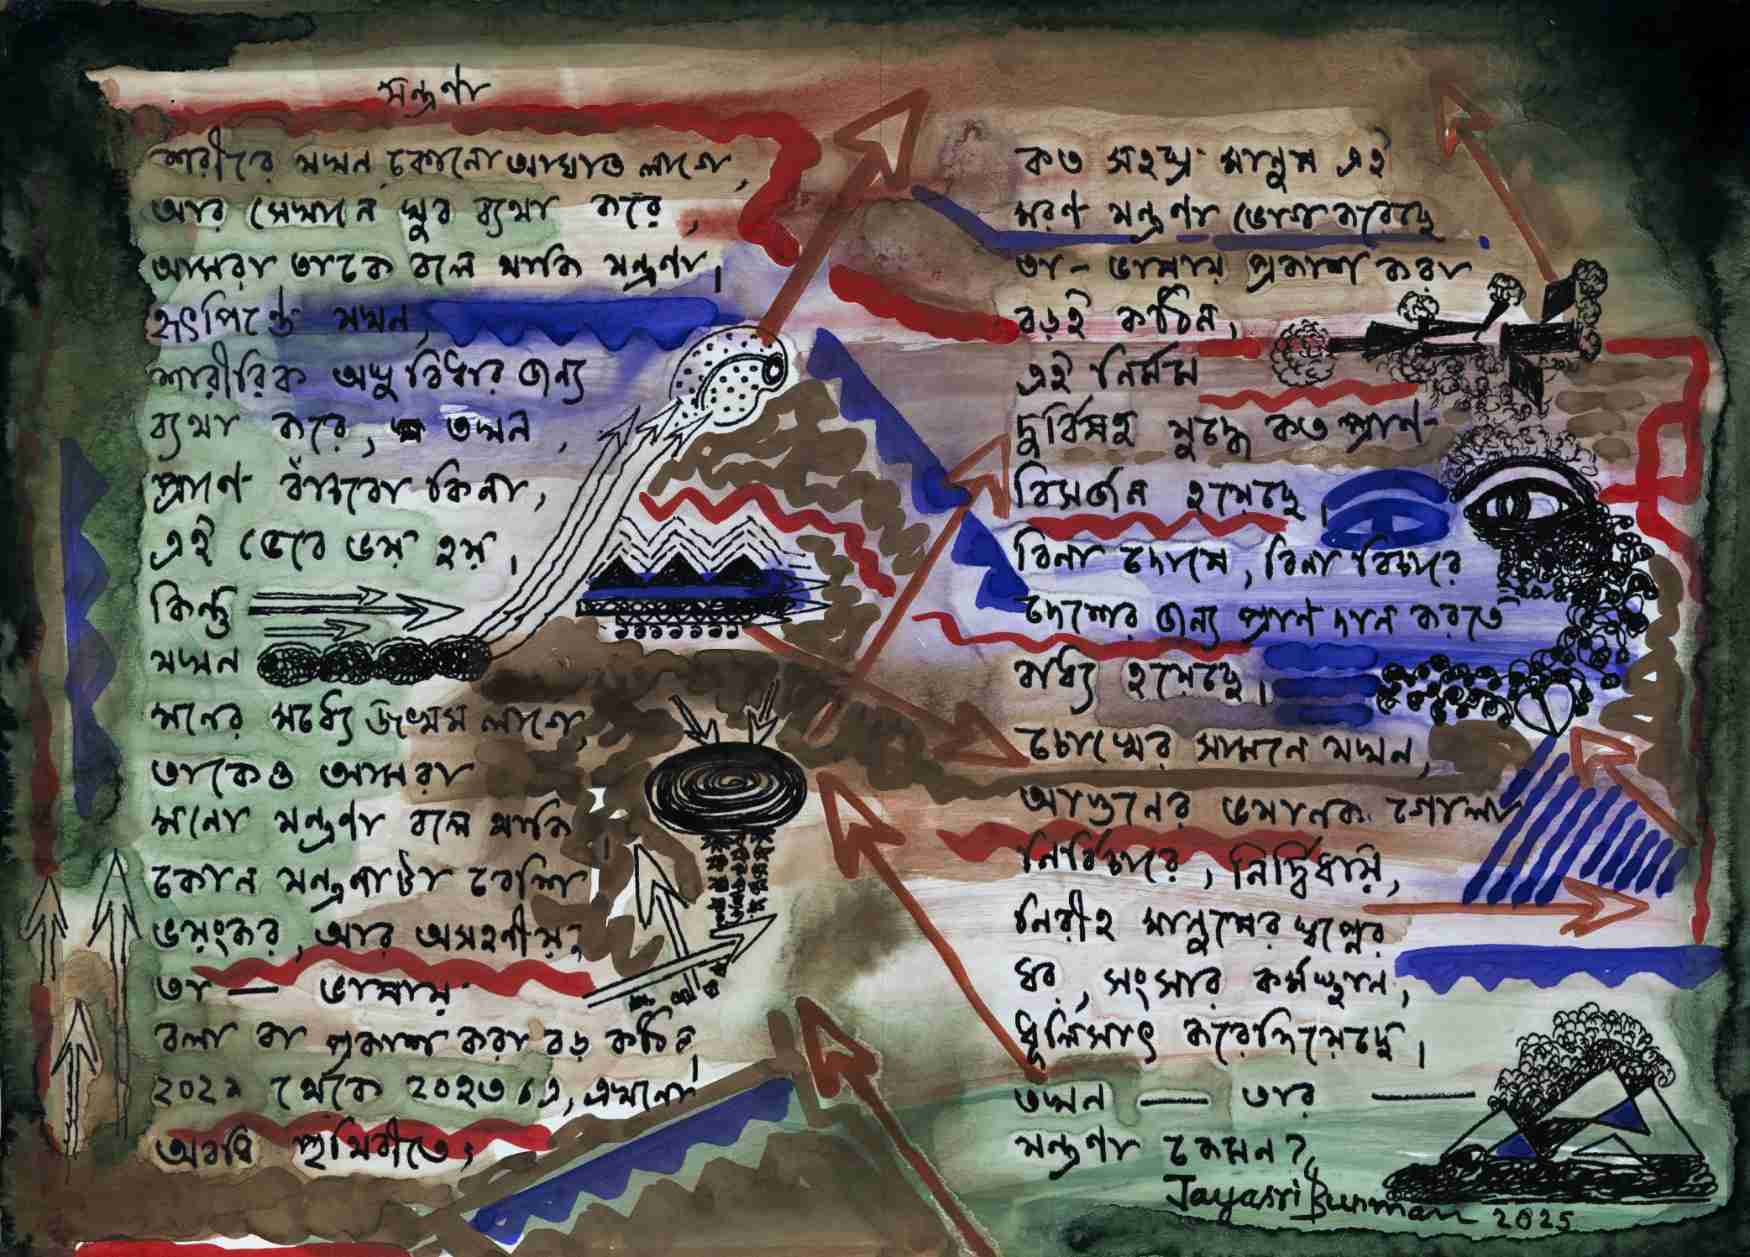 যন্ত্রণা
শরীরে যখন কোনো আঘাত লাগে,
আর সেখানে খুব ব্যথা করে,
আমরা তাকে বলে থাকি যন্ত্রণা।
হৃৎপিণ্ডে যখন,
শারীরিক অসুবিধার জন্য
ব্যথা করে, তখন,
প্রাণে বাঁচবো কিনা,
এই ভেবে ভয় হয়।
কিন্তু
যখন
মনের মধ্যে জখম লাগে,
তাকেও আমরা
মনো যন্ত্রণা বলে থাকি
কোন যন্ত্রণাটা বেশি
ভয়ংকর, আর অসহনীয়,
তা — ভাষায়
বলা বা প্রকাশ করা বড় কঠিন,
থেকে ২০২৩ এ, এখনো
অবধি পৃথিবীতে,
কত সহস্র মানুষ এই
মরণ যন্ত্রণা ভোগ করেছে
তা - ভাষায় প্রকাশ করা
বড়ই কঠিন,
এই নির্মম
দুর্বিসহ যুদ্ধে কত প্রাণ-
বিসর্জন হয়েছে।
বিনা দোষে, বিনা বিচারে
দেশের জন্য প্রাণ দান করতে
বাধ্য হয়েছে।
চোখের সামনে যখন,
আগুনের ভয়ানক গোলা
নির্বিচারে, নির্দ্বিধায়,
নিরীহ মানুষের স্বপ্নের
ঘর, সংসার কর্মস্থান,
ধূলিসাৎ করেদিয়েছে।
তখন — তার —
যন্ত্রণা কেমন?
Jayasri Burman 2025